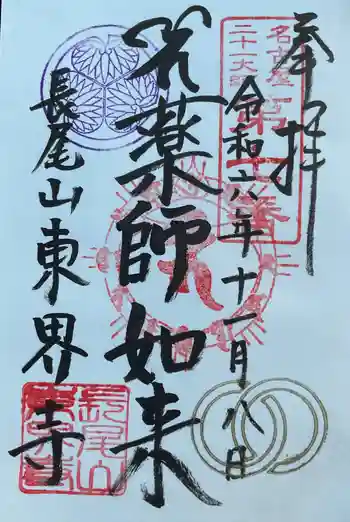 奉拝
名古屋
二十一大師
第十番
令和六年十一月八日
薬師如来
長尾山東界寺
長尾山
東界寺